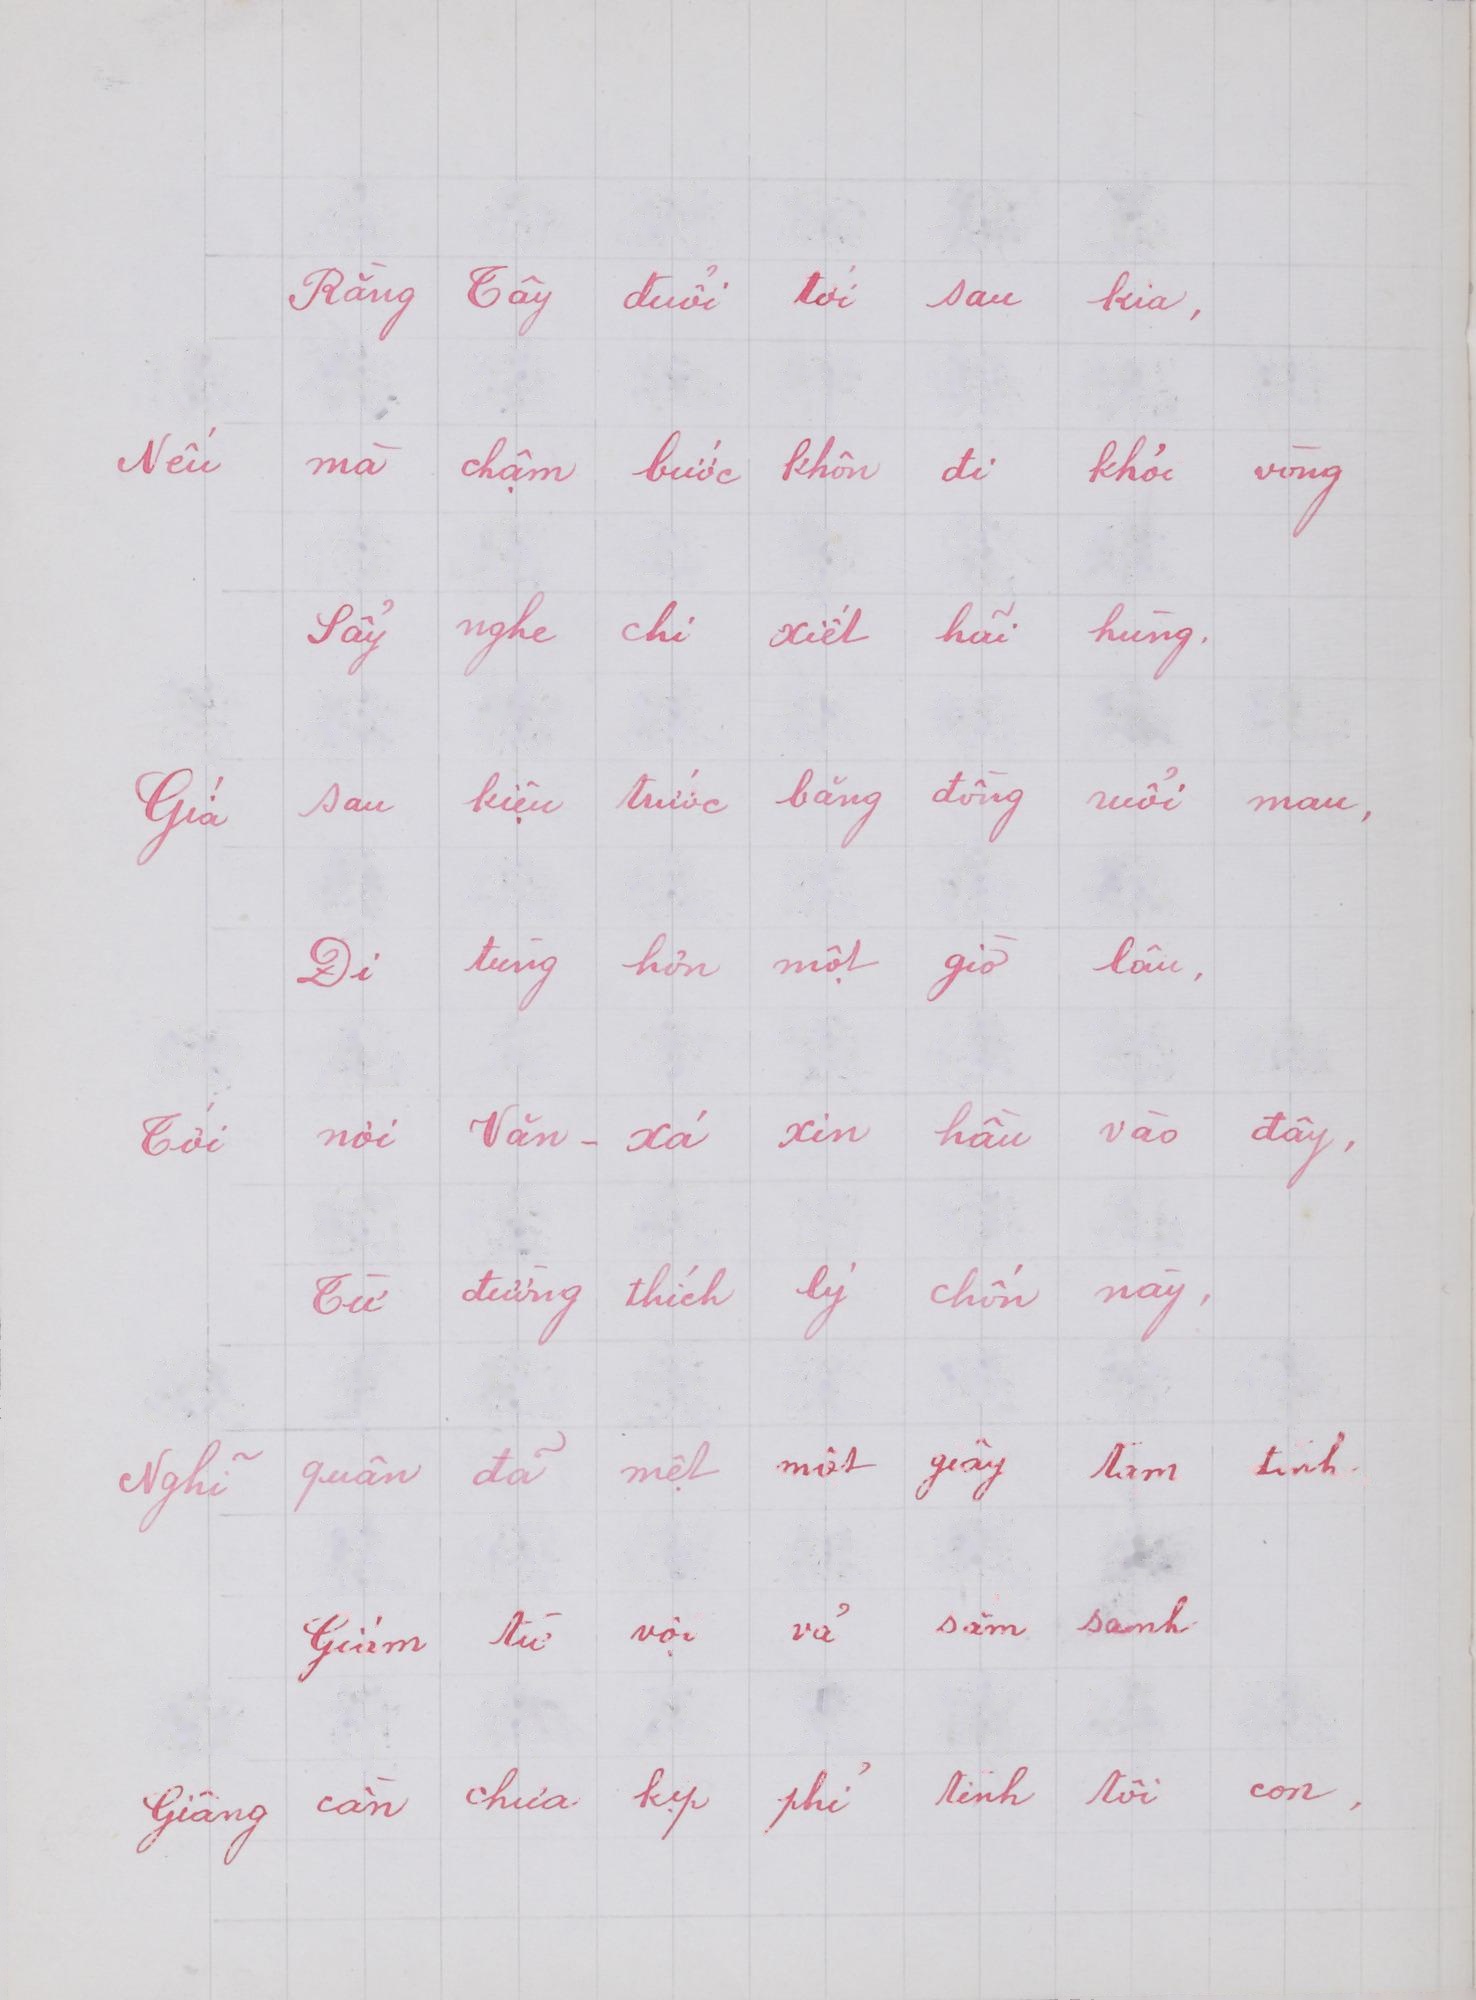 Rằng Tây đuổi tới sau kia,
Nếu mà chậm bước khôn đi khỏi vòng
Sẩy nghe chi xiết hãi hùng.
Giá sau kiệu trước băng đồng ruổi mau,
Đi từng hơn một giờ lâu,
Tới nơi Văn-xá xin hầu vào đây,
Từ đường thích lý chốn này,
Nghĩ quân đã mệt một giây tạm
Giám từ vội vả sắm sanh
Giâng cần chưa kịp phỉ tình tôi con,